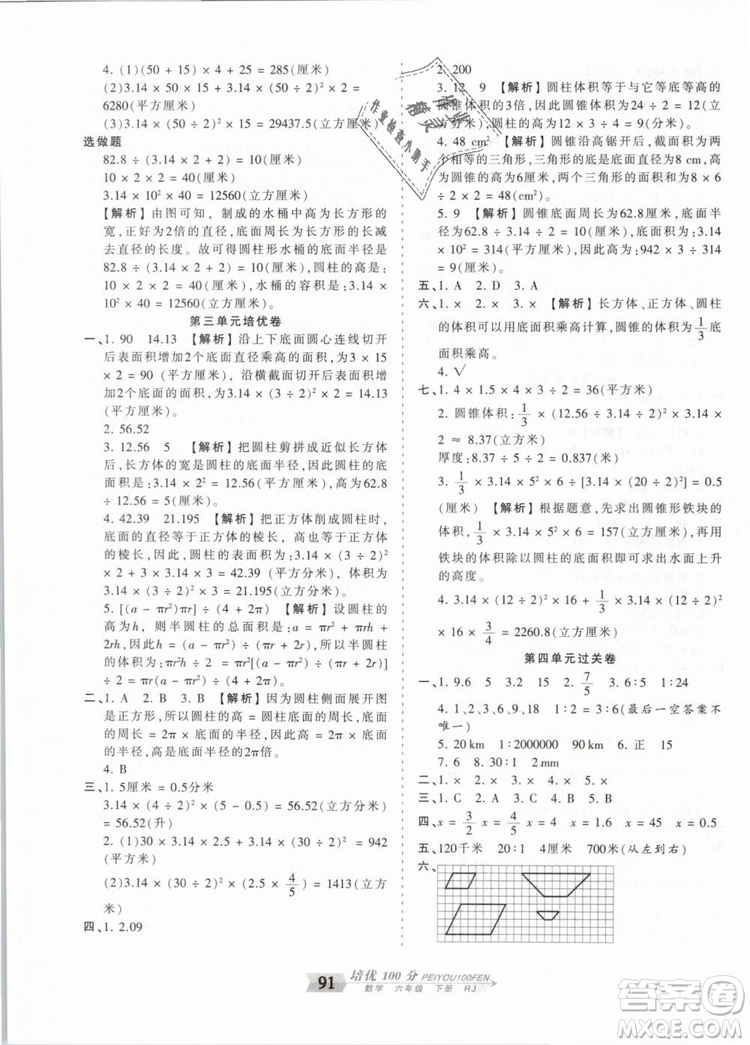 4. (1)(50 + 15) × 4 + 25 = 285(厘米)
(2)3.14 × (50 ÷ 2)² × 2 + 3.14 × 50 × 15 =
6280(平方厘米)
(3)3.14 × (50 ÷ 2)² × 15 = 29437.5(立方厘米)
选做题
82.8 ÷ (3.14 × 2 + 2) = 10(厘米)
10 × 2 × 2 = 40(厘米)
3.14 × 10² × 40 = 12560(立方厘米)
【解析】由图可知，制成的水桶中高为长方形的
宽，正好为2倍的直径的长度，长方形的长减
去直径的长度。故圆柱形水桶的底面半径是
82.8 ÷ (3.14 × 2 + 2) = 10(厘米)，圆柱的高是：
10×2×2=40(厘米)，水桶的容积是 3.14 ×
10² × 40 = 12560(立方厘米)。
第三单元培优卷
一、1. 90 14.13 【解析】沿上下底面圆心连线切开
后表面积增加了2个底面直径乘高的面积，为3 ×
15 × 2 = 90 (平方厘米)。沿横截面切开后表面积增
加了2个底面的面积，为 3.14 × (3 ÷ 2)² × 2 = 14.13
(平方厘米)。
2. 56.52
3. 12.56 5 【解析】把圆柱剪拼成近似长方体
后，长方体的宽是圆柱的底面半径，高为62.8 ÷
12.56 = 5(厘米)。
4. 42.39 21.195 【解析】把正方体削成圆柱，
底面的直径等于正方体的棱长，高也等于正方体
的棱长，因此，圆柱的表面积为 3.14 × (3 ÷ 2)² ×
2 + 3.14 × 3 × 3 = 42.39 (平方厘米)，体积为
3.14 × (3 ÷ 2)² × 3 = 21.195(立方厘米)。
5. [(a − πr²) ÷ (4 + 2π)] πr² 【解析】设圆柱的
高为h，则半圆柱的总面积是：a = πr² + πrh +
4rh，则h = (a − πr²) ÷ (4r + πr)。所以半圆柱的
体积为[(a − πr²) ÷ (4 + 2π)] πr。
二、1. A 2. D 3. A 【解析】因为圆柱侧面展开图
是正方形，所以圆柱的高 = 圆柱底面的周长，底面
的周长 = 2π × 底面半径，所以圆柱的高是底面半
径的2π倍。
4. B
三、1. 5厘米 = 0.5分米
3.14 × (12 ÷ 2)² × 0.5 = 56.52(立方分米)
= 56.52(升)
2. (1)30 × 3.14 × 2.5 + 3.14 × (30 ÷ 2)² = 942
(平方厘米)
(2)3.14 × (30 ÷ 2)² × (2.5 × 4/5) = 1413(立方厘
米)
四、1. 2.09
2. 200
3. 12 9 【解析】圆柱体积等于与它等底等高的
圆锥的3倍，因此原体积为24 ÷ 2 = 12(厘米)。
4. 48 cm² 【解析】圆锥沿高锯开后表面积增加为
两个相等的三角形，三角形的底面直径为8 cm，高
为6 cm，两个三角形的面积和为 8 × 6 ×
2 ÷ 2 = 48(cm²)。
5. 9 【解析】圆锥底面周长为62.8厘米，则底面
半径为62.8 ÷ 3.14 ÷ 2 = 10(厘米)，底面积为：3.14
× 10² = 314 (平方厘米)，因此高为：942 × 3 ÷ 314
= 9(厘米)。
五、1. A 2. D 3. A
六、1. × 2. × 3. × 【解析】长方体、正方体、圆柱
的体积都可用底面积乘高计算，圆锥的体积应1/3
底面积乘高。
4. √
七、1. 4 × 1.5 × 4 × 3 ÷ 2 = 36(平方米)
2. 圆锥体积：1/3 × (12.56 ÷ 3.14 ÷ 2)² × 3.14 ×
2 ≈ 8.37(立方米)
厚度：8.37 ÷ 5 ÷ 2 = 0.837(米)
3. 1/3 × 3.14 × (12 ÷ 2)² × 5 ÷ [3.14 × (20 ÷ 2)²] = 0.6
(厘米) 【解析】根据题意，先求出圆锥形铁块的
体积，1/3 × 3.14 × (12 ÷ 2)² × 5(立方厘米)，再用
铁块的体积除以圆柱的底面积即得出水面上升
的高度。
4. 3.14 × (12 ÷ 2)² × 16 + 1/3 × 3.14 × (12 ÷ 2)²
× 16 × 3/4 = 2260.8(立方厘米)
第四单元过关卷
一、1. 9.6 5 3.2 15 2. 7/5 3. 1:6 1:24
4. 1、2、3、6、9、18 1:2 = 3:6(最后一空答案不
唯一)
5. 20 km 1:2000000 50 6. 正 15
7. 6 8. 1:30 9. 1:2 2mm
二、1. × 2. × 3. × 4. × 5. ×
三、1. C 2. A 3. B 4. C 5. A
四、x = 3/2 x = 4/5 x = 4 x = 1.6 x = 45 x = 0.5
五、120千米 20:1 4厘米 700米(从左到右)
六、
91 培优100分 PEIYOU100FEN
数学 六年级 下册 RJ
作业精灵
作业检查小助手
答案圈
MXQE.COM